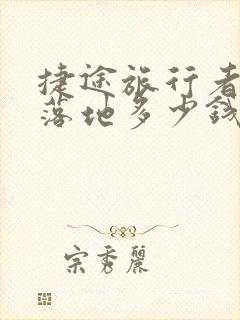 捷途旅行者
落地多少钱
宗秀丽